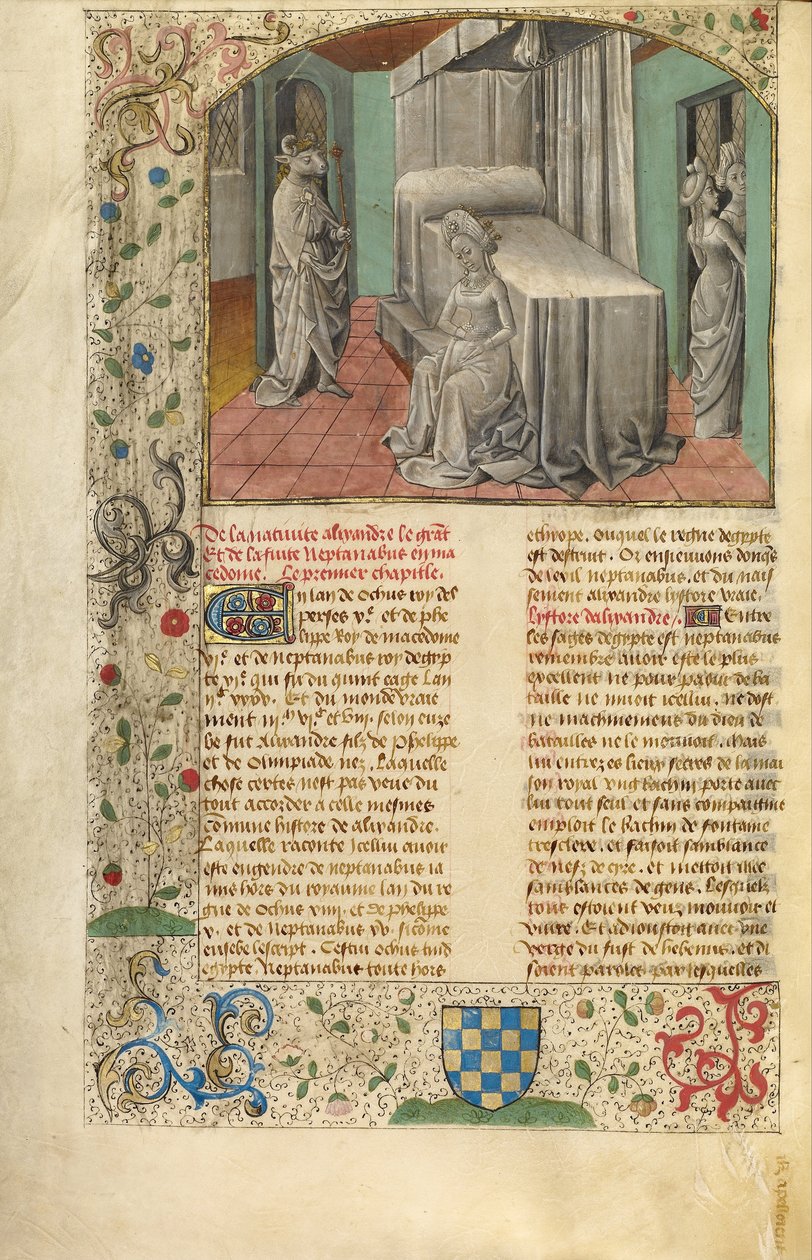 De la nativite alixandre le grant
Et de la fuite Neptanabus en ma
cedome. Le premier chapitle.
En lan de Ochus roy des
perses v.e et de phe
lippe Roy de macedome
vi.e et de neptanabus roy degyp
te vi.e qui fu du quint eage lan
Et du monde vraie
ment selon euze
be fut Alixandre filz de Phelippe
et de Olimpiade nez. Laquelle
chose certes nest pas veue du
tout accorder a celle mesmes
comune histore de alixandre.
Laquelle raconte icellui avoir
este engendre de neptanabus ia
mis hors du royaume lan du re
gne de Ochus viii. et de phelippe
v. et de Neptanabus xv. sicome
eusebe lescript. Cestui Ochus
egypte Neptanabus boute hors
ethiope. Ouquel le regne degypte
est destruit. Or ensieuvons donqs
de lexil neptanabus. et du nais
sement alixandre lystore vraie.
Lystore dalixandre. Entre
les sages degypte est neptanabus
remembre avoir este le plus
excellent ne pour paour de ba
taille ne icellui. ne dost
ne machinemens du dieu de
batailles ne le mouvoit. Mais
lui entrez es lieux secres de la mai
son royal ung bachin porte avec
lui tout seul et sans compaignie
emploit le bachin de fontaine
tresclere. et faisoit samblance
de nefz de cyre. et mettoit
samblances de gens. Lesquelz
tous estoient veuz mouvoir et
vivre. Et adioustoit avec une
verge du fust de hebenus. et di
soient paroles par lesquelles